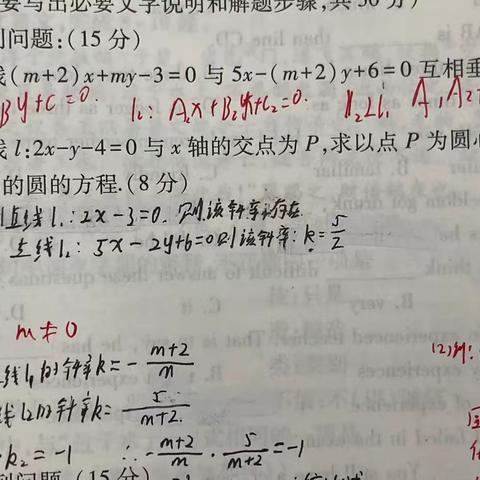 要写出必要文字说明和解题步骤,共30分)
列问题:(15分)
线(m+2)x+my-3=0与5x-(m+2)y+6=0互相垂
By+C=0. l₂: A₂x+B₂y+C₂=0. l₂⊥l₁ A₁A₂
线l:2x-y-4=0与x轴的交点为P,求以点P为圆心
的圆的方程.(8分)
直线l₁:2x-3=0. 则该斜率不存在
直线l₂: 5x-2y+6=0则该斜率: k=5/2
m≠0
线l₁的斜率k=-(m+2)/m
(2)解:
线l₂的斜率k=5/(m+2).
k₂=-1 ∴-(m+2)/m·5/(m+2)=-1
列问题.(15分)